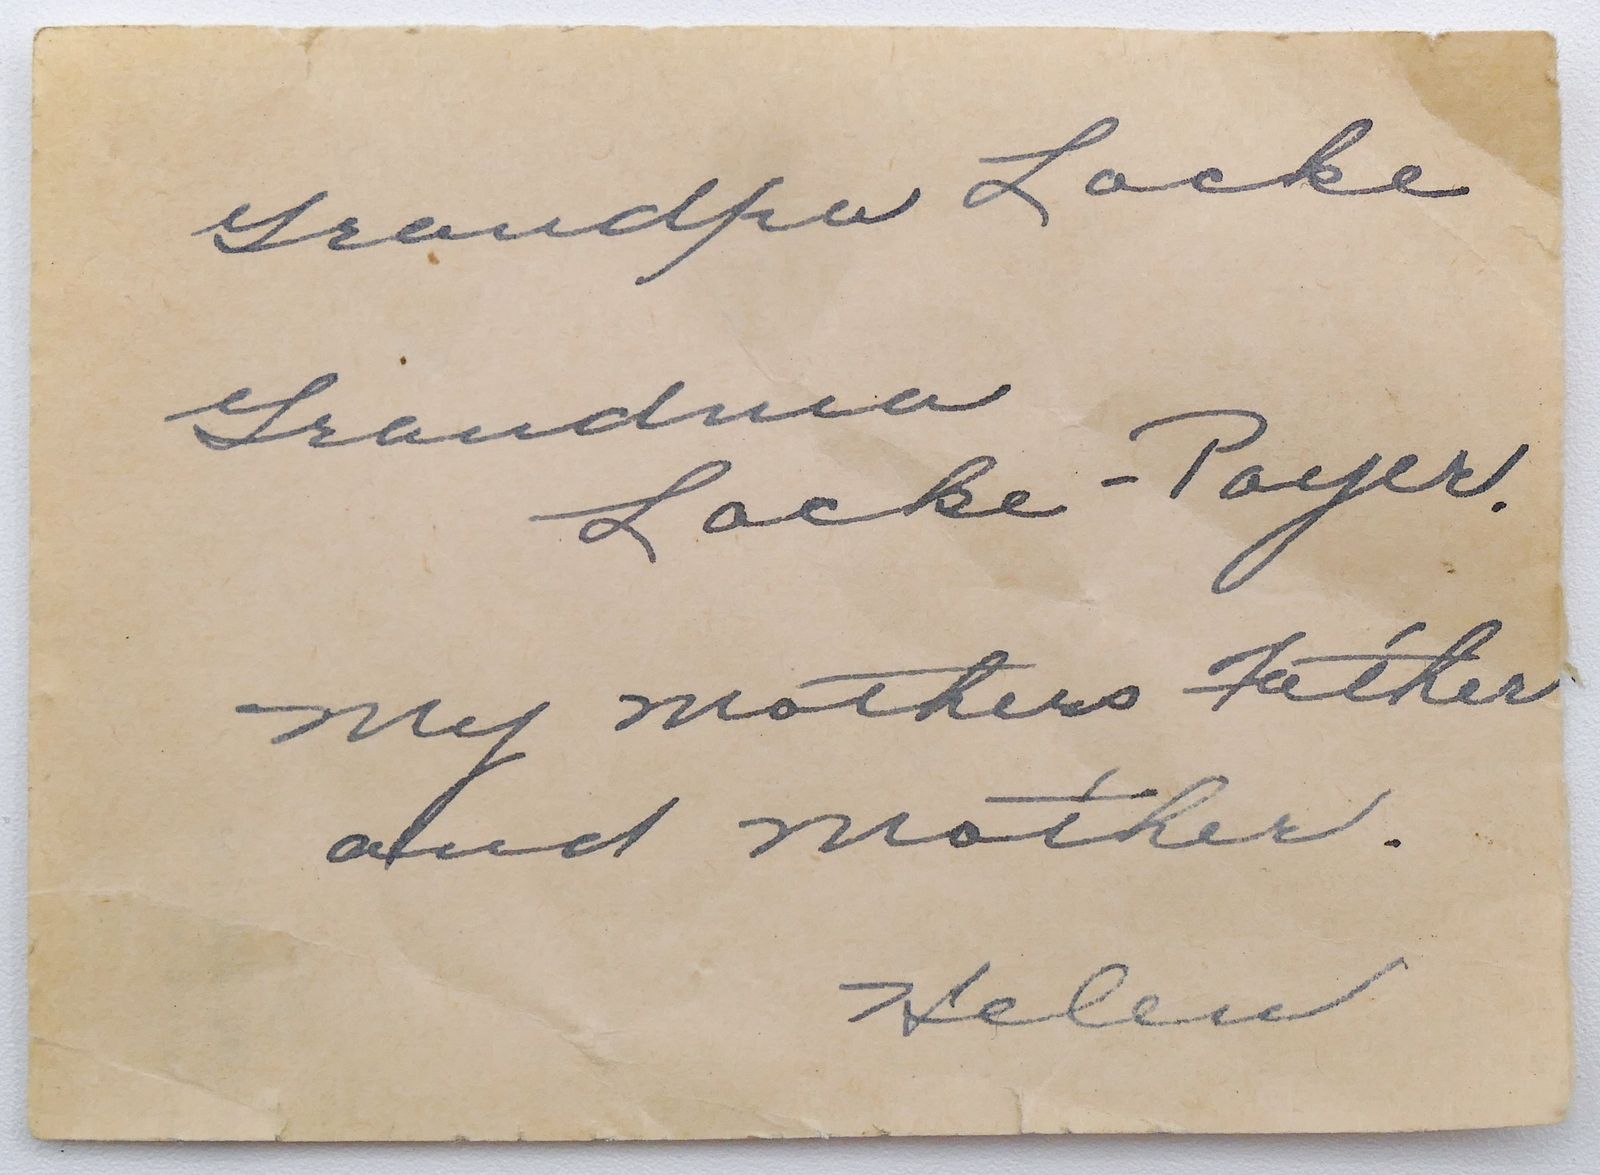 Grandpa Locke
Grandma
Locke - Poyer.
My mothers Father
and mother.
Helen